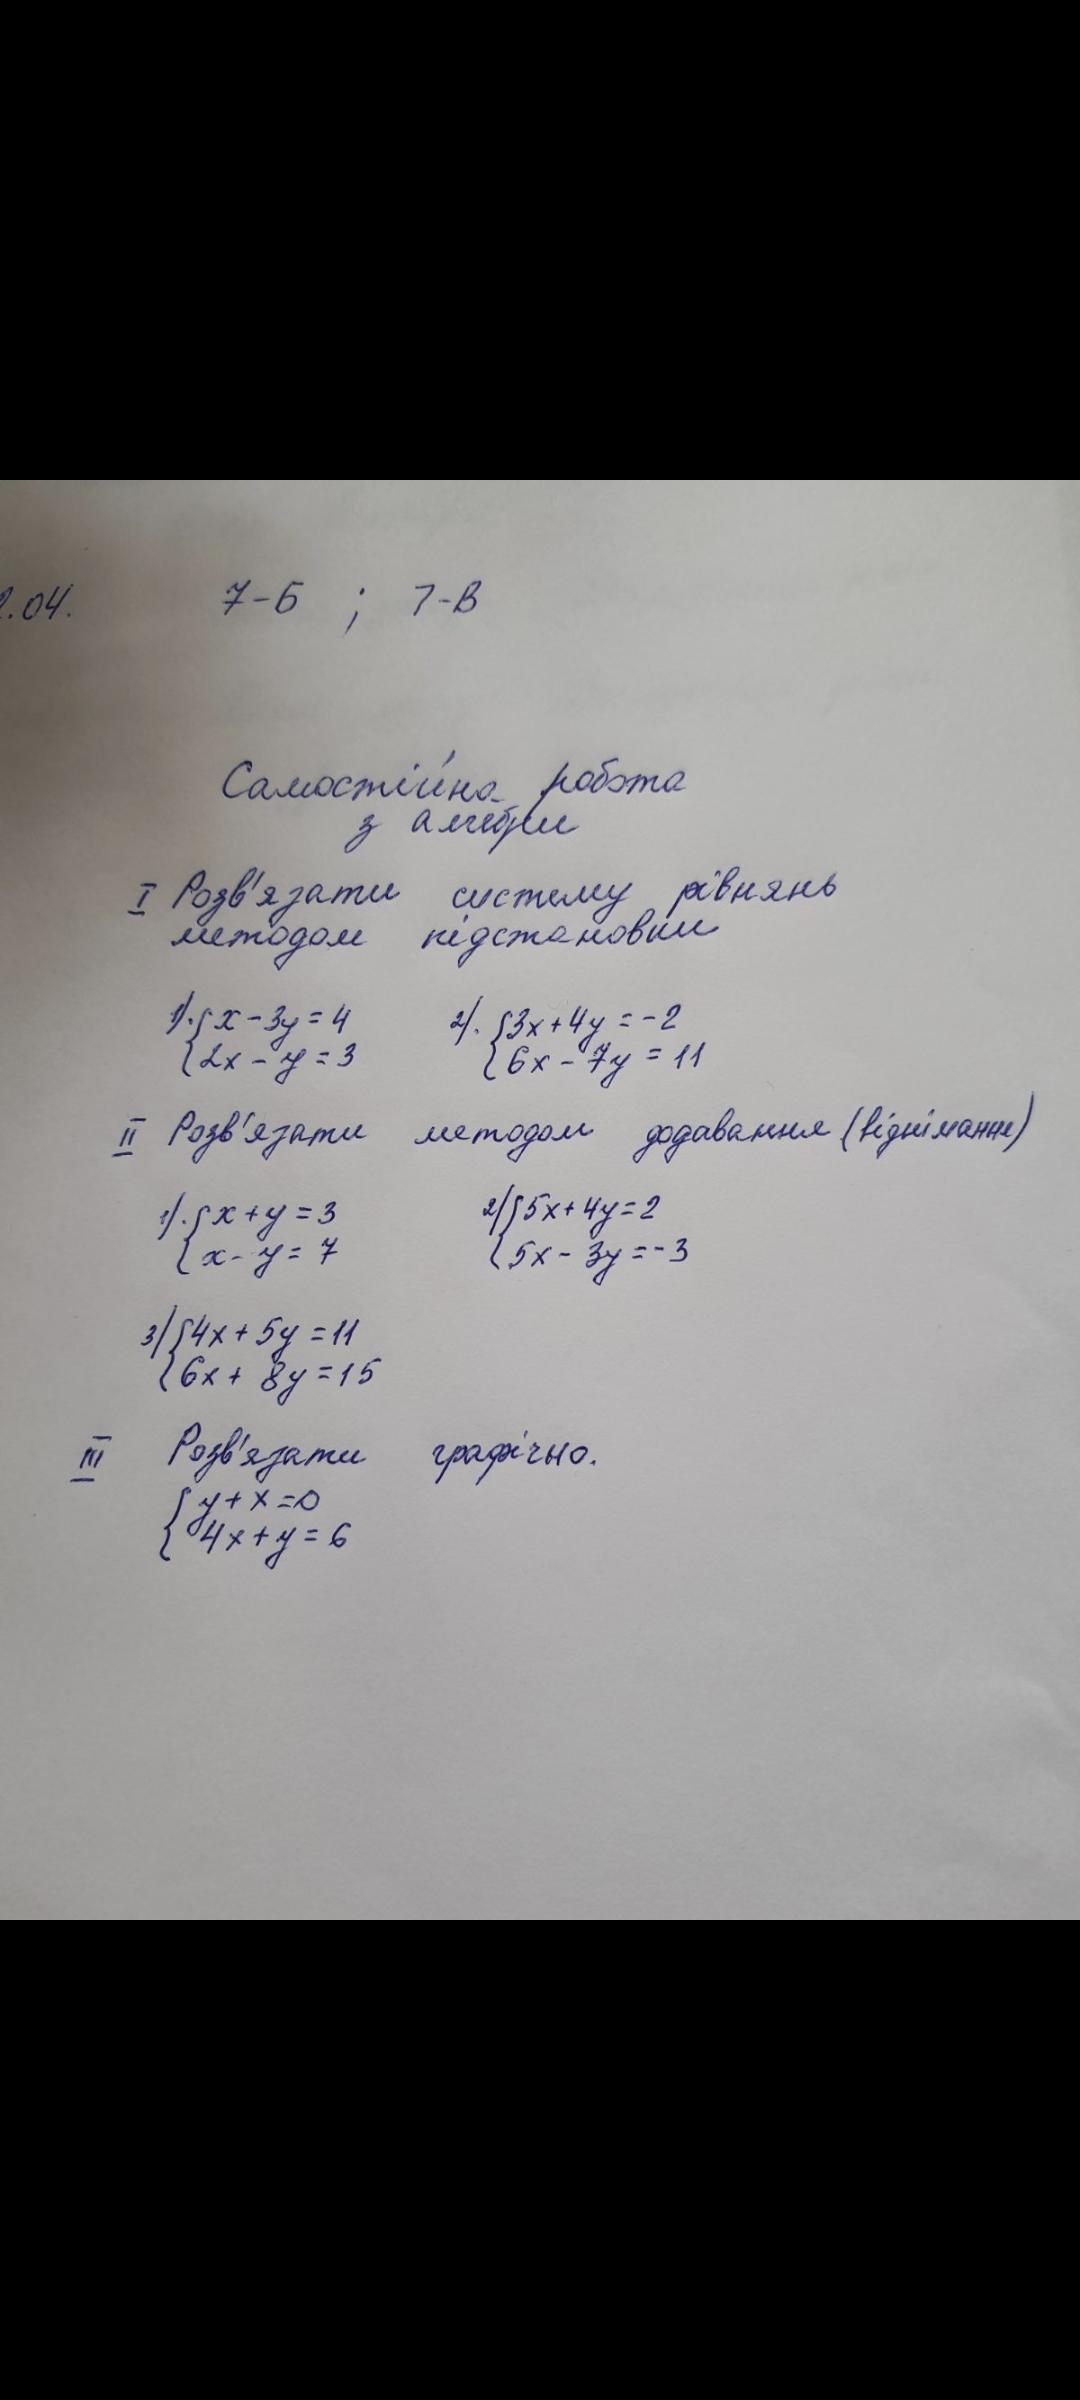 .04. 7-Б ; 7-В
Самостійна робота
з алгебри
I Розв'язати систему рівнянь
методом підстановки
1). { x - 3y = 4 2). { 3x + 4y = -2
2x - y = 3 6x - 7y = 11
II Розв'язати методом додавання (віднімання)
1). { x + y = 3 2) { 5x + 4y = 2
x - y = 7 5x - 3y = -3
3) { 4x + 5y = 11
6x + 8y = 15
III Розв'язати графічно.
{ y + x = 0
4x + y = 6